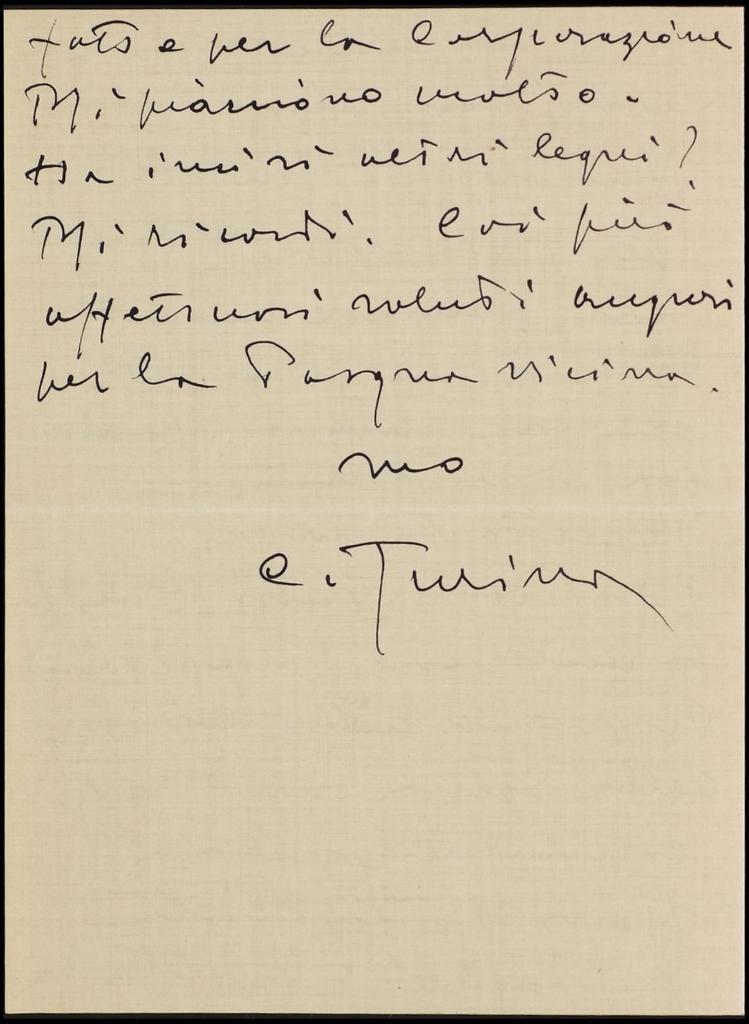 fatto e per la Corporazione
Mi piacciono molto.
Ha incisi altri legni?
Mi ricordi. Coi più
affettuosi saluti auguri
per la Pasqua vicina.
suo
C. Turina